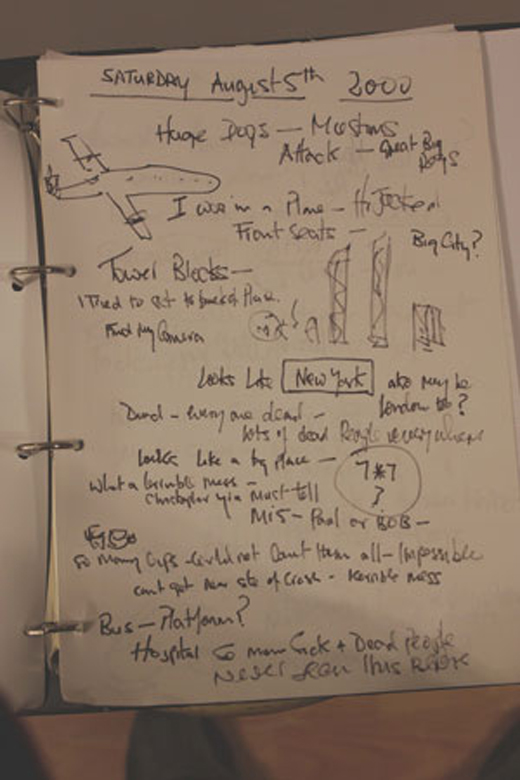 SATURDAY August 5th 2000
Huge Dogs — Mastins
Attack — Great Big
Dogs
I was in a Plane — HiJacked
Front seats —
Big City?
Tower Blocks —
I Tried to get to back of Plane.
Find my Camera
Looks Like New York also may be
London to?
Dead — everyone dead —
lots of dead People everywhere
Looks Like a big place —
7*7
?
What a terrible mess —
Christopher must tell
Mi5 — Paul or BOB —
So many Cops — Could not Count them all — Impossible
cant get near site of Crash — terrible mess
Bus — Platform?
Hospital So many Sick + Dead People
Never seen this Before